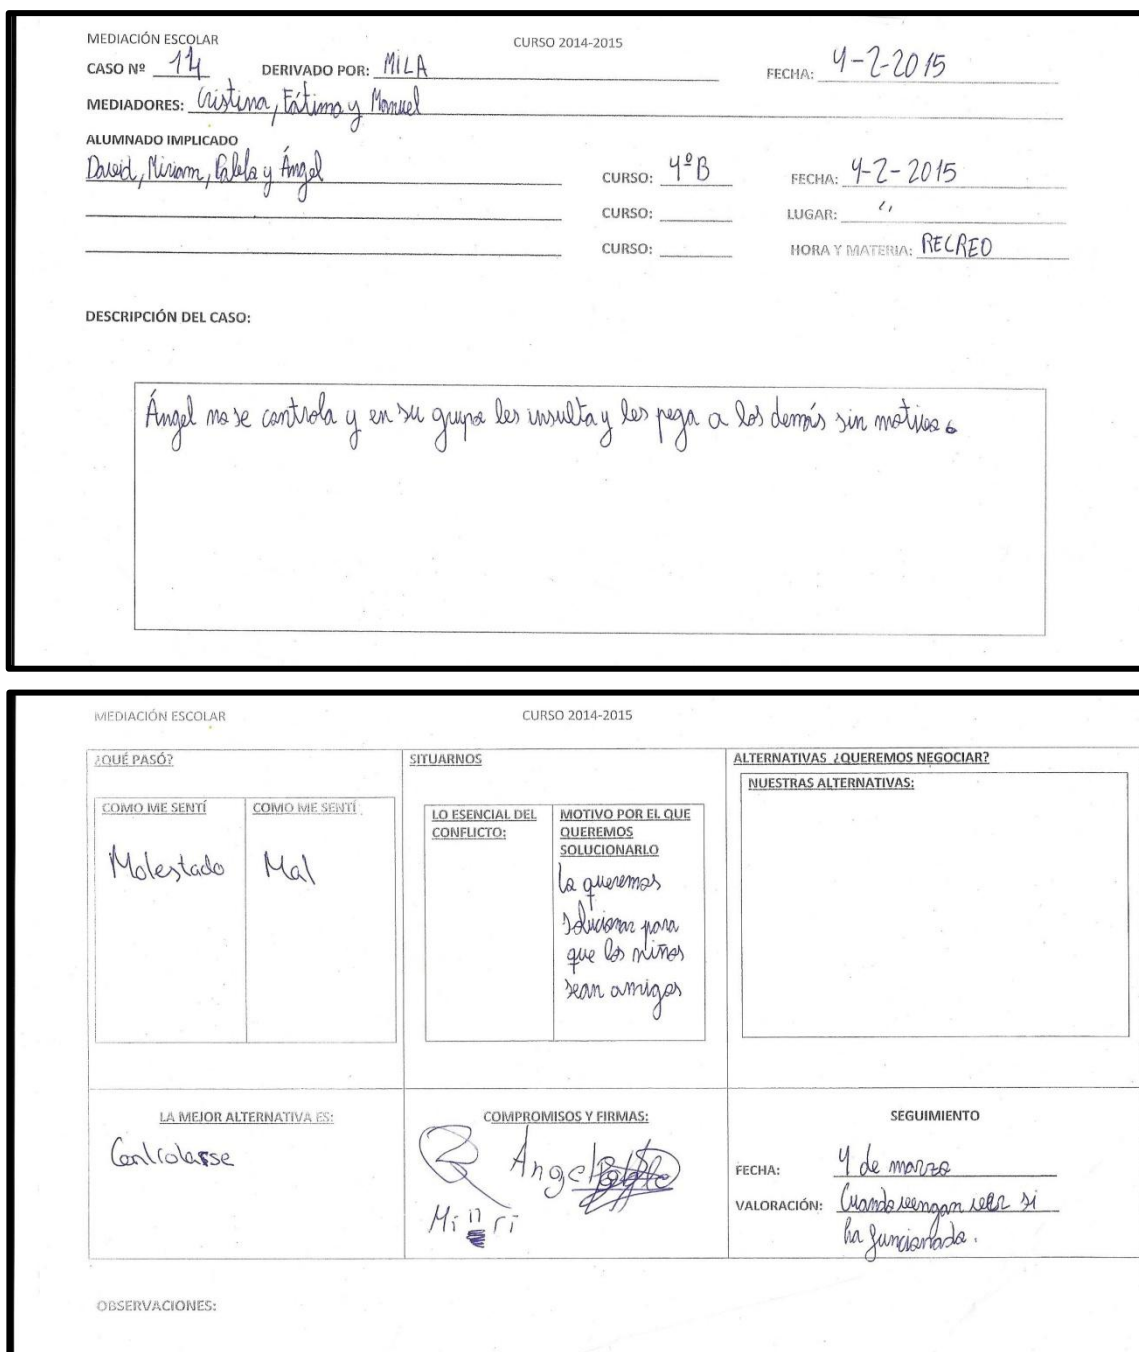 MEDIACIÓN ESCOLAR CURSO 2014-2015
CASO Nº 14 DERIVADO POR: MILA FECHA: 4-2-2015
MEDIADORES: Cristina, Fátima y Manuel
ALUMNADO IMPLICADO
David, Miriam, Pablo y Ángel CURSO: 4ºB FECHA: 4-2-2015
CURSO: LUGAR: "
CURSO: HORA Y MATERIA: RECREO
DESCRIPCIÓN DEL CASO:
Ángel no se controla y en su grupo les insulta y les pega a los demás sin motivo.
MEDIACIÓN ESCOLAR CURSO 2014-2015
¿QUÉ PASÓ?
COMO ME SENTÍ
Molestado
COMO ME SENTÍ
Mal
SITUARNOS
LO ESENCIAL DEL
CONFLICTO:
MOTIVO POR EL QUE
QUEREMOS
SOLUCIONARLO
Lo queremos
solucionar para
que los niños
sean amigos
ALTERNATIVAS ¿QUEREMOS NEGOCIAR?
NUESTRAS ALTERNATIVAS:
LA MEJOR ALTERNATIVA ES:
Controlarse
COMPROMISOS Y FIRMAS:
Ángel
SEGUIMIENTO
FECHA: 4 de marzo
VALORACIÓN: Cuando vengan ver si
ha funcionado.
OBSERVACIONES: